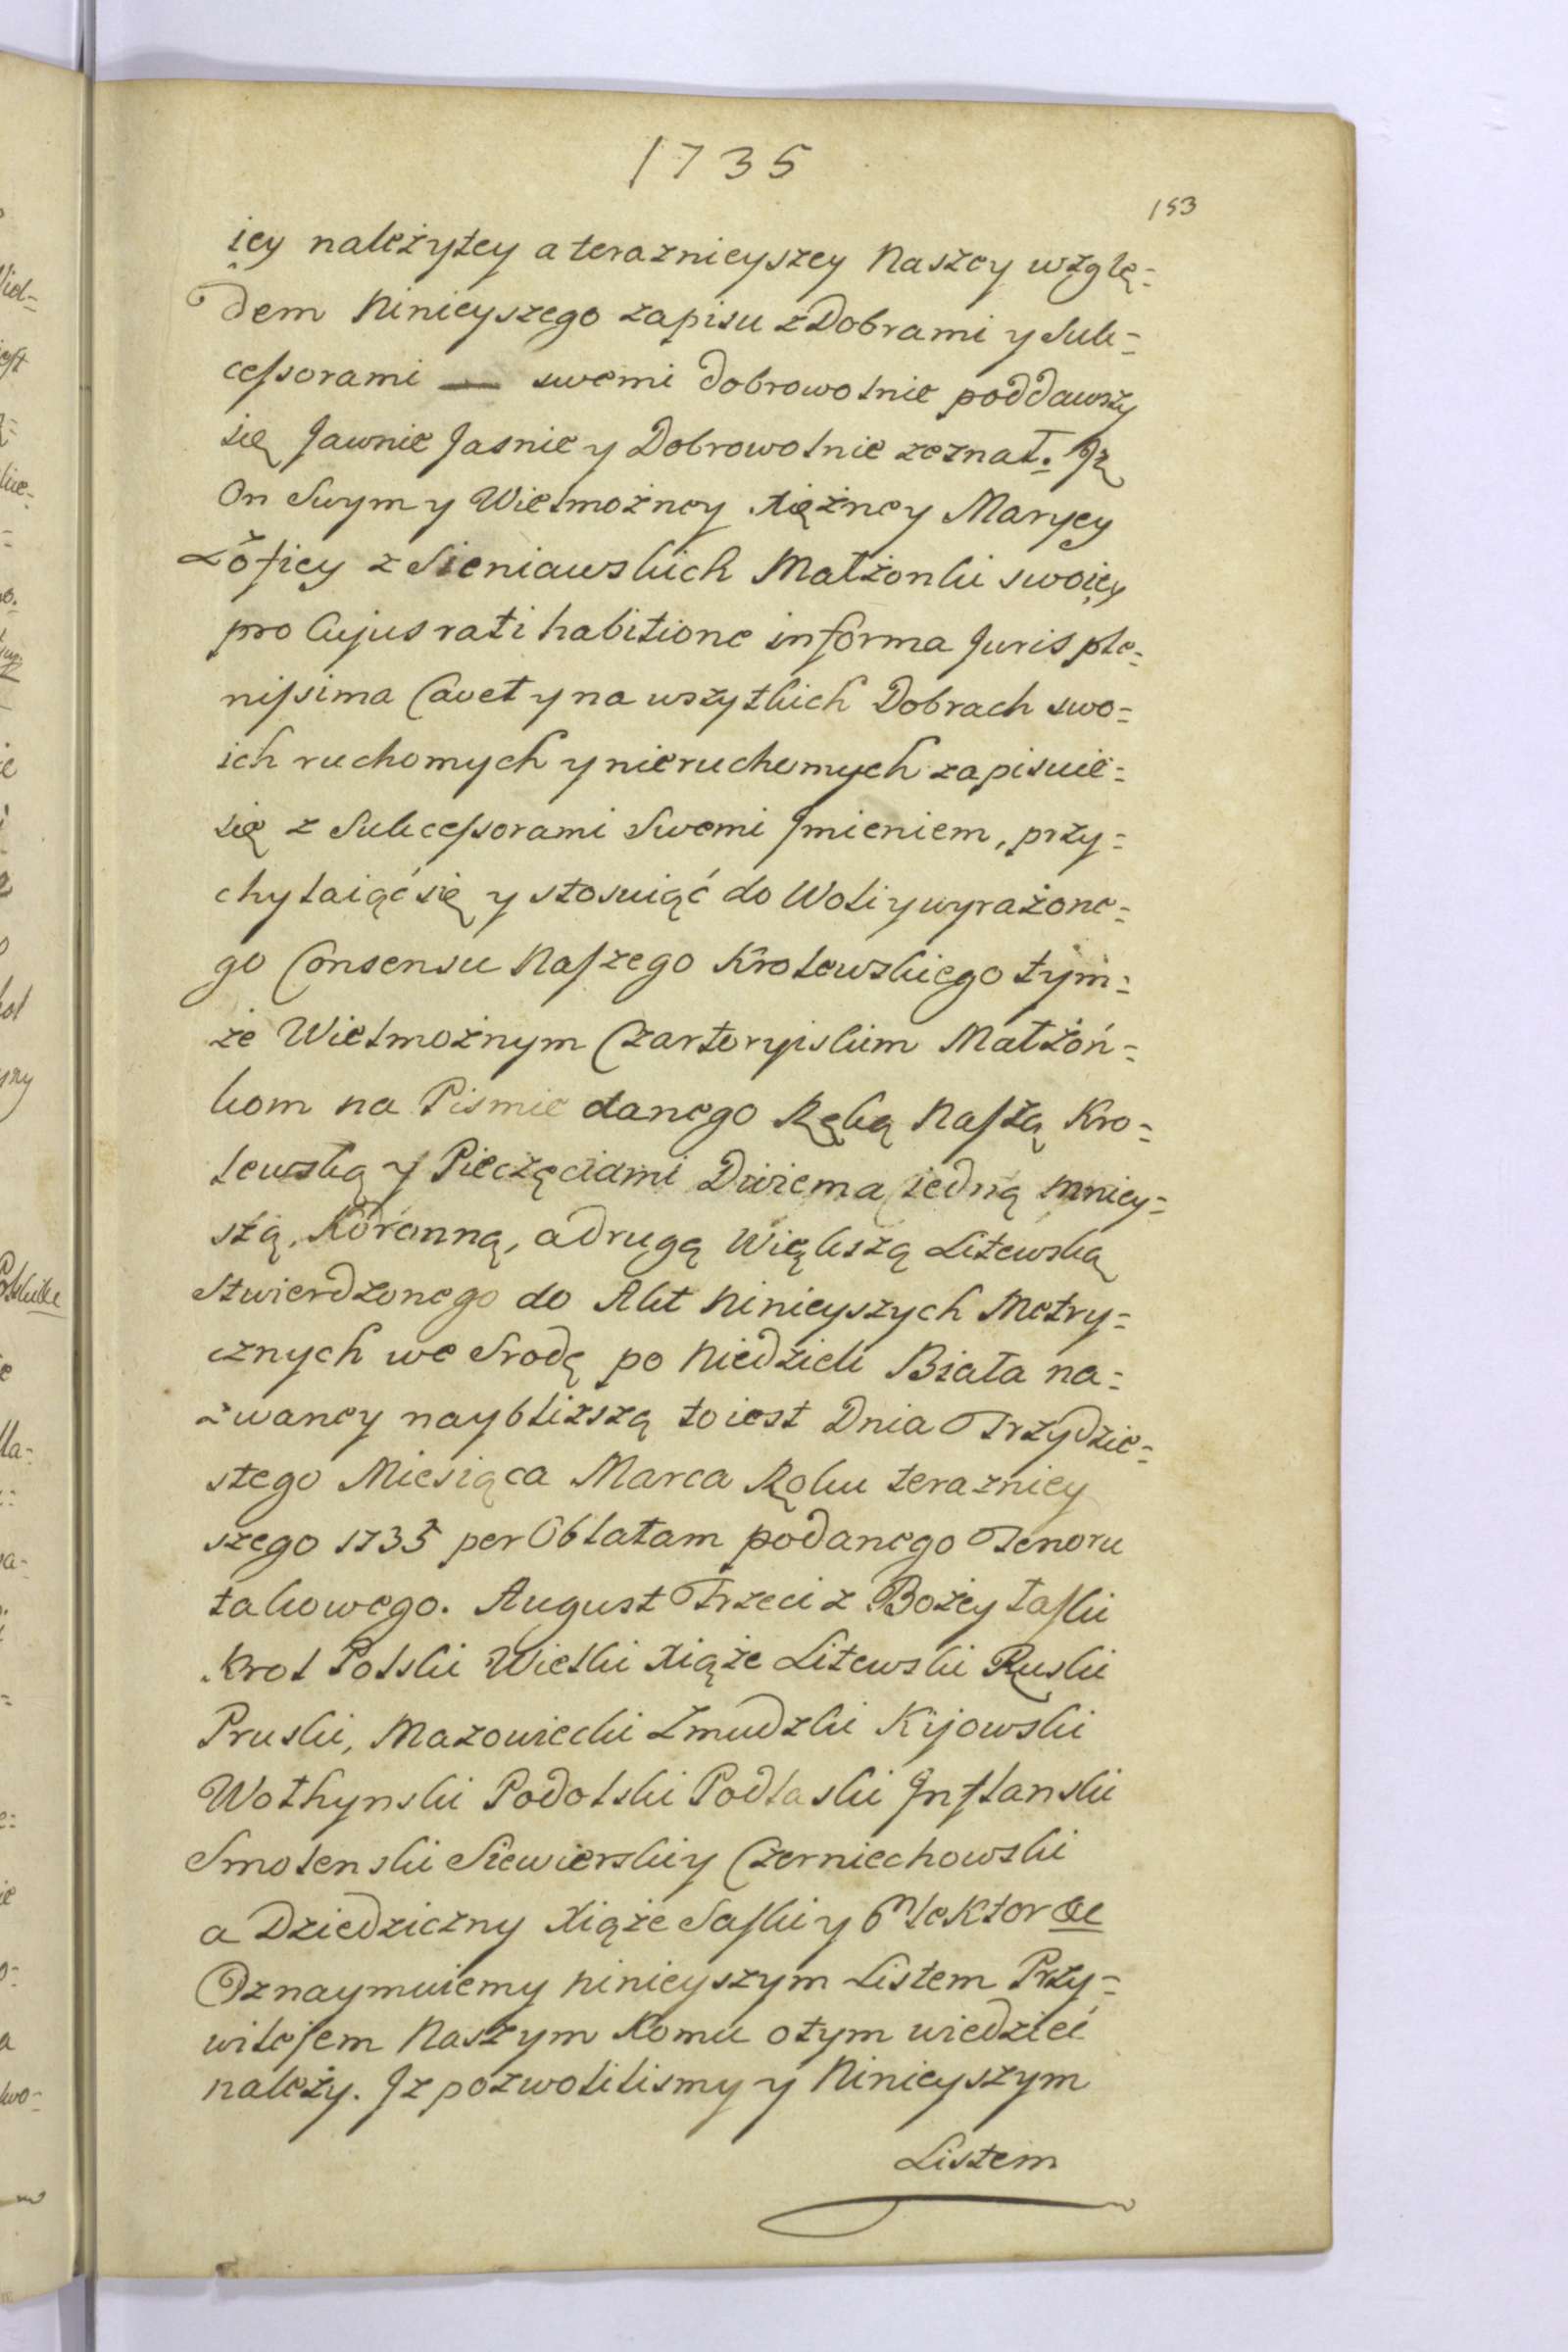 1735
153
iey należytey a teraznieyszey Naszey wzglę=
dem Ninieyszego zapisu z Dobrami y Suk=
cessorami — swemi dobrowolnie poddawszy
się Jawnie Jasnie y Dobrowolnie zeznał. Iż
On Swym y Wielmożney Xiężney Maryey
Zofiey z Sieniawskich Małżonki swoiey
pro Cujus rati habitione in forma Juris ple=
nissima Cavet y na wszytkich Dobrach swo=
ich ruchomych y nieruchomych zapisuie=
się z Sukcessorami Swemi Jmieniem, przy=
chylaiąć się y stosuiąć do Woli y wyrażone=
go Consensu Naszego Krolewskiego tym=
że Wielmożnym Czartoryiskim Małżoń=
kom na Pismie danego Ręką Naszą Kro=
lewską y Pieczęciami Dwiema, iedną mniey=
szą, Koronną, a drugą Większą Litewską
Stwierdzonego do Akt Ninieyszych Metry=
cznych we Srodę po Niedzieli Biała na=
zwaney naybliższą to iest Dnia Trzydzie=
stego Miesiąca Marca Roku terazniey
szego 1735 per Oblatam podanego Tenoru
takowego. August Trzeci z Bożey łaski
Krol Polski Wielki Xiąże Litewski Ruski
Pruski, Mazowiecki Żmudzki Kijowski
Wołhynski Podolski Podlaski Jnflanski
Smolenski Siewierski y Czerniechowski
a Dziedziczny Xiąże Saski y Elektor &c
Oznaymuiemy ninieyszym Listem Przy=
wilejem Naszym Komu o tym wiedzieć
należy. Jż pozwolilismy y Ninieyszym
Listem